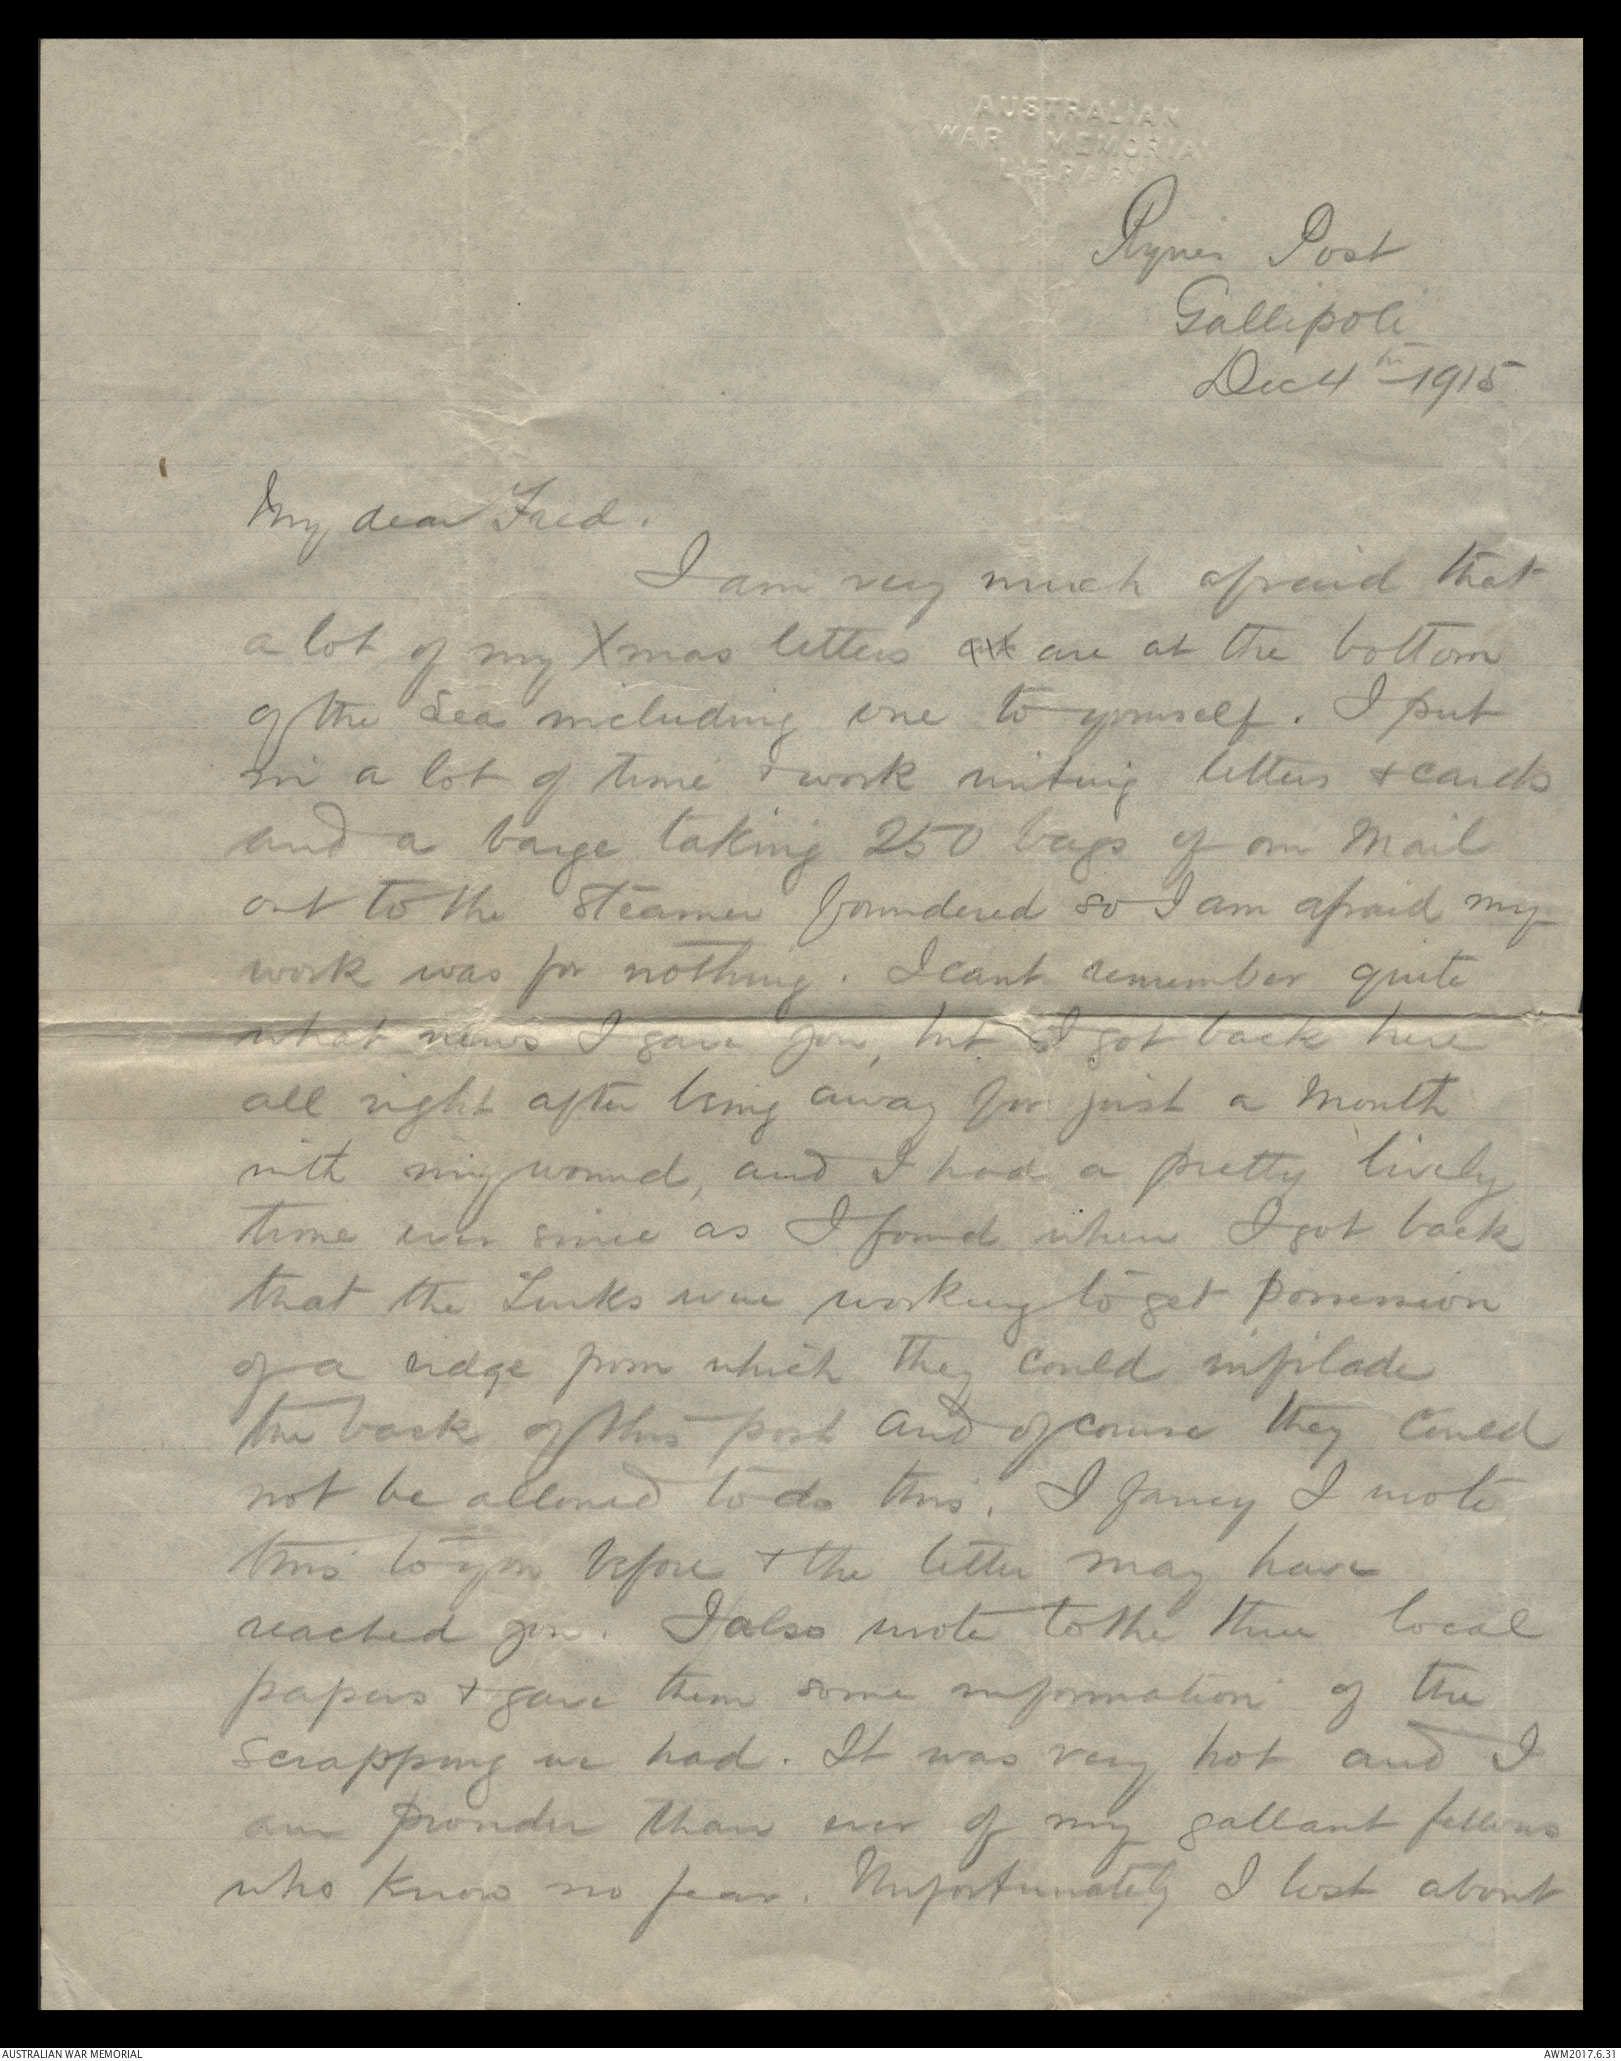 AUSTRALIAN
WAR MEMORIAL
LIBRARY
Rynie's Post
Gallipoli
Dec 4th 1915
My dear Fred.
I am very much afraid that
a lot of my Xmas letters are at the bottom
of the Sea including one to yourself. I put
in a lot of time & work writing letters & cards
and a barge taking 250 bags of our Mail
out to the Steamer foundered so I am afraid my
work was for nothing. I cant remember quite
what news I gave you, but I got back here
all right after being away for just a Month
with my wound, and I had a pretty lively
time ever since as I found when I got back
that the Turks were working to get possession
of a ridge from which they could infilade
the back of this post and of course they could
not be allowed to do this. I fancy I wrote
this to you before & the letter may have
reached you. I also wrote to the three local
papers & gave them some information of the
Scrapping we had. It was very hot and I
am prouder than ever of my gallant fellows
who know no fear. Unfortunately I lost about
AUSTRALIAN WAR MEMORIAL
AWM2017.6.31